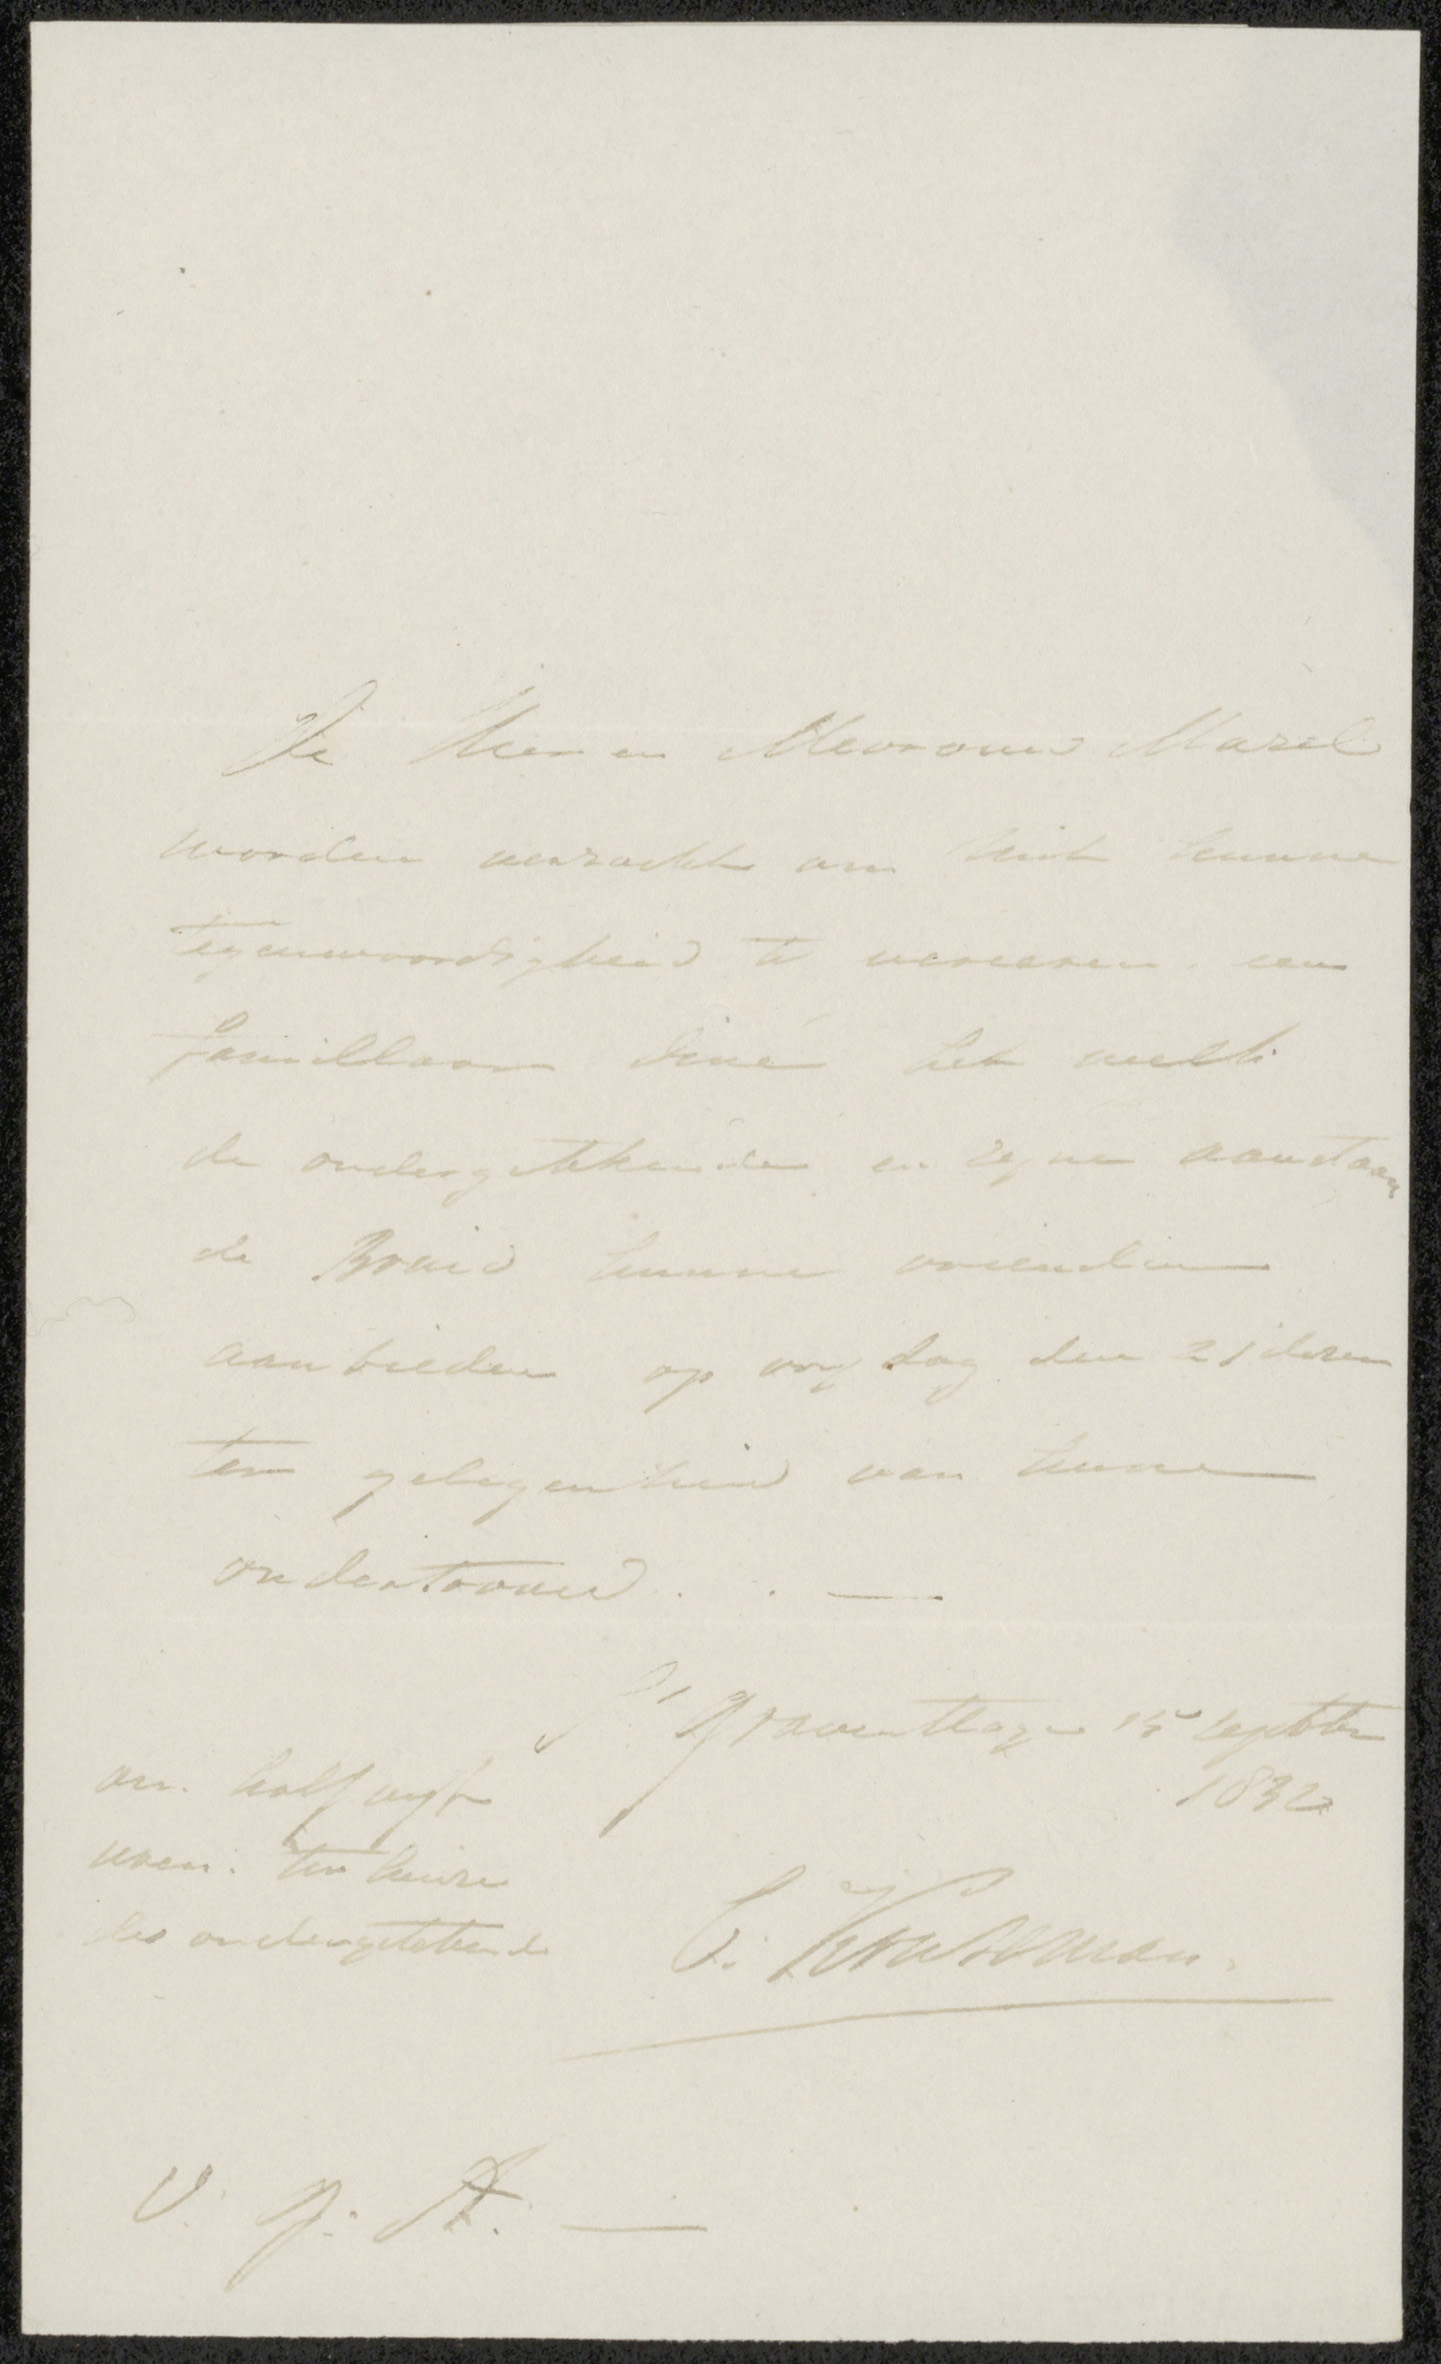 De Heer en Mevrouw Mazel
worden verzocht om met hunne
tegenwoordigheid te vereeren een
familiaar diné het welk
de ondergetekende en zyne aanstaan
de Bruid hunne vrienden
aanbieden op vrydag den 21 dezer
ter gelegenheid van hunne
ondertrouw. . —
S' Gravenhage 15 septber
1832
om half vyf
uren. ten huize
des ondergetekende
C. Kruseman.
V. G: A. —